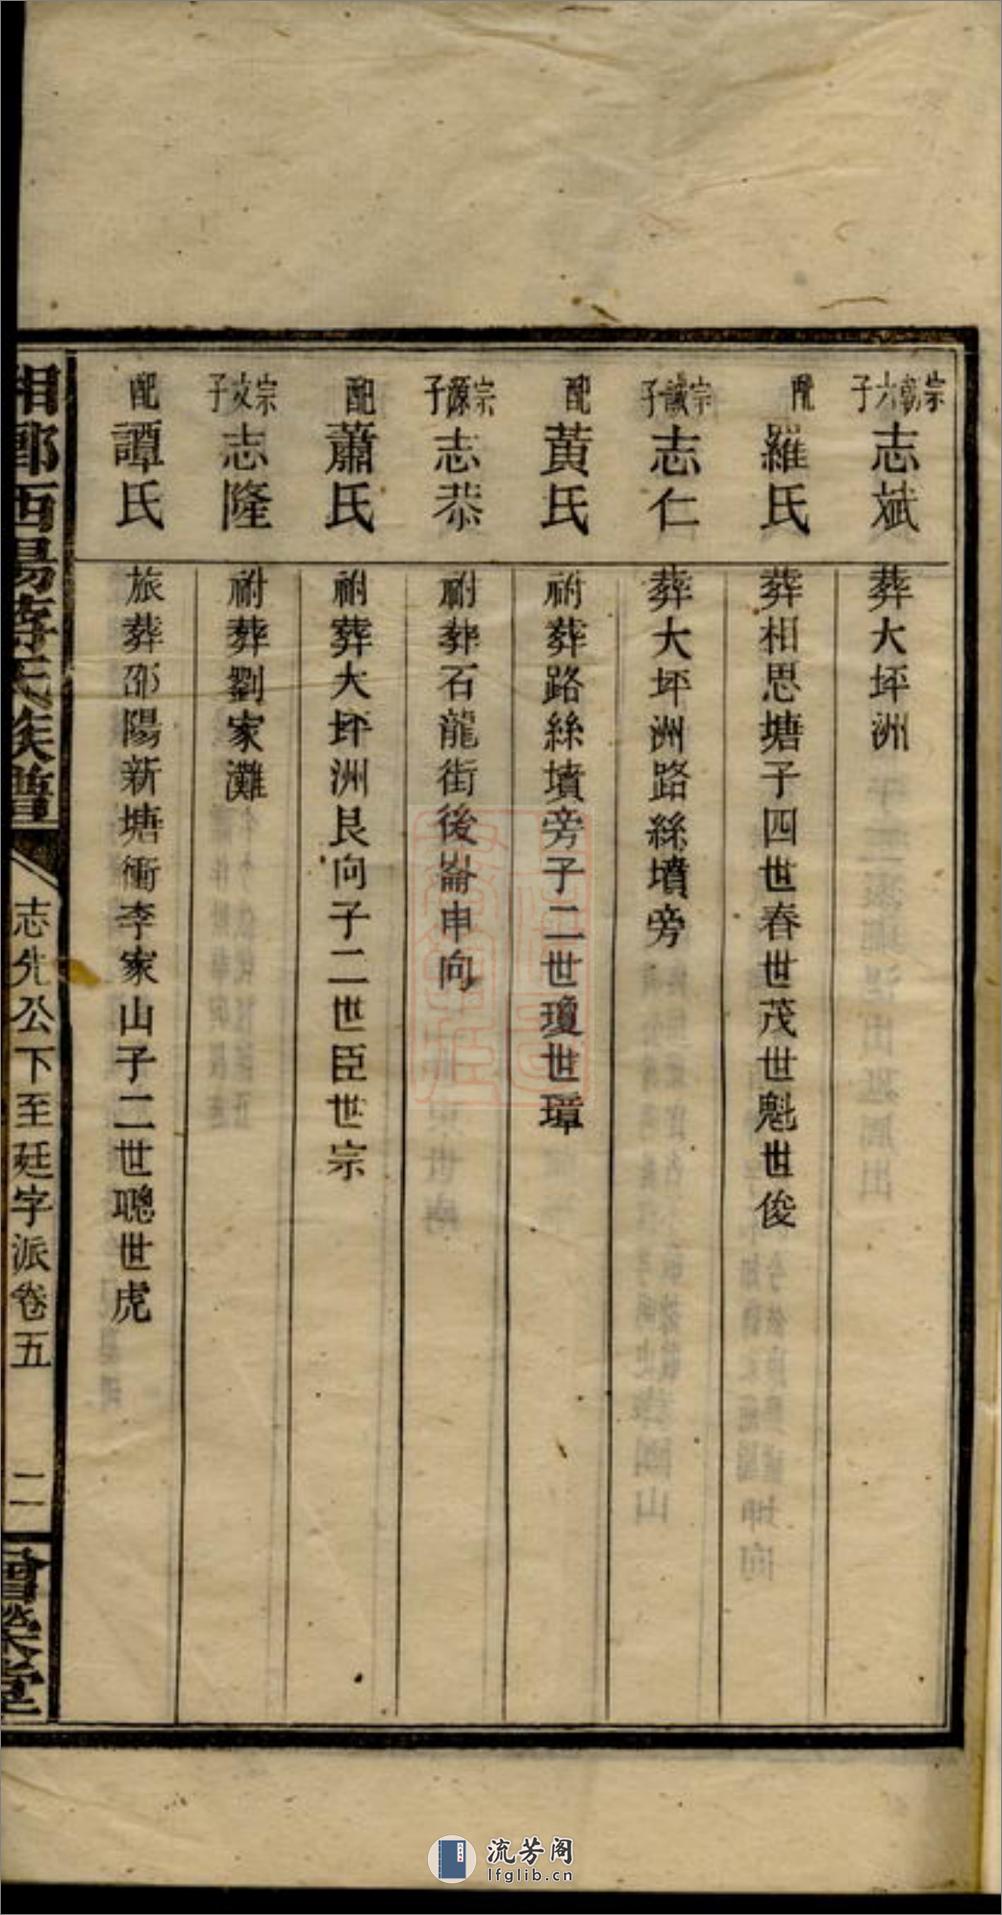 宗朝六子 志斌 葬大坪洲
配 羅氏 葬相思塘子四世春世茂世魁世俊
宗誠子 志仁 葬大坪洲路絲墳旁
配 黄氏 祔葬路絲墳旁子二世瓊世璋
宗源子 志恭 祔葬石龍街後崙申向
配 蕭氏 祔葬大坪洲艮向子二世臣世宗
宗文子 志隆 祔葬劉家灘
配 譚氏 旅葬邵陽新塘衝李家山子二世聰世虎
相鄉西陽 氏族譜
志先公下至廷字派卷五
二
堂
流芳阁
lfglib.cn